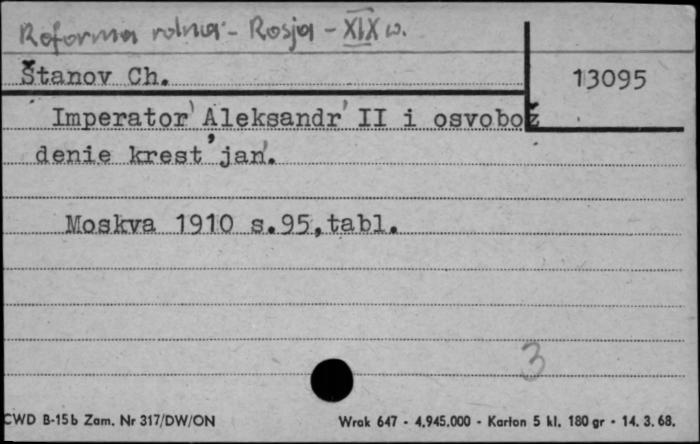 Reforma rolna - Rosja - XIX w.
Štanov Ch.
13095
Imperator' Aleksandr' II i osvobož
denie krest'jan'.
Moskva 1910 s.95,tabl.
3
CWD B-15b Zam. Nr 317/DW/ON
Wrak 647 - 4.945.000 - Karton 5 kl. 180 gr - 14. 3. 68.